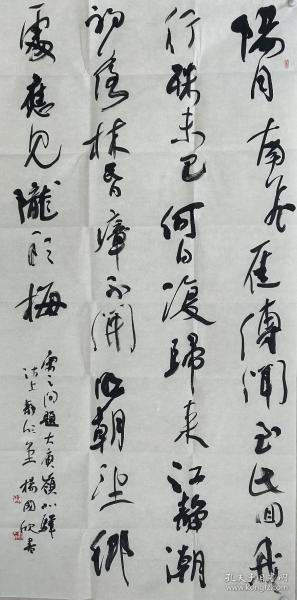 陽月南飛雁傳聞至此回我
行殊未已何日復歸來江靜潮
初落林昏瘴不開明朝望鄉
處應見隴頭梅
宋之問題大庾嶺北驛
楊國欣書
孔夫子旧书网